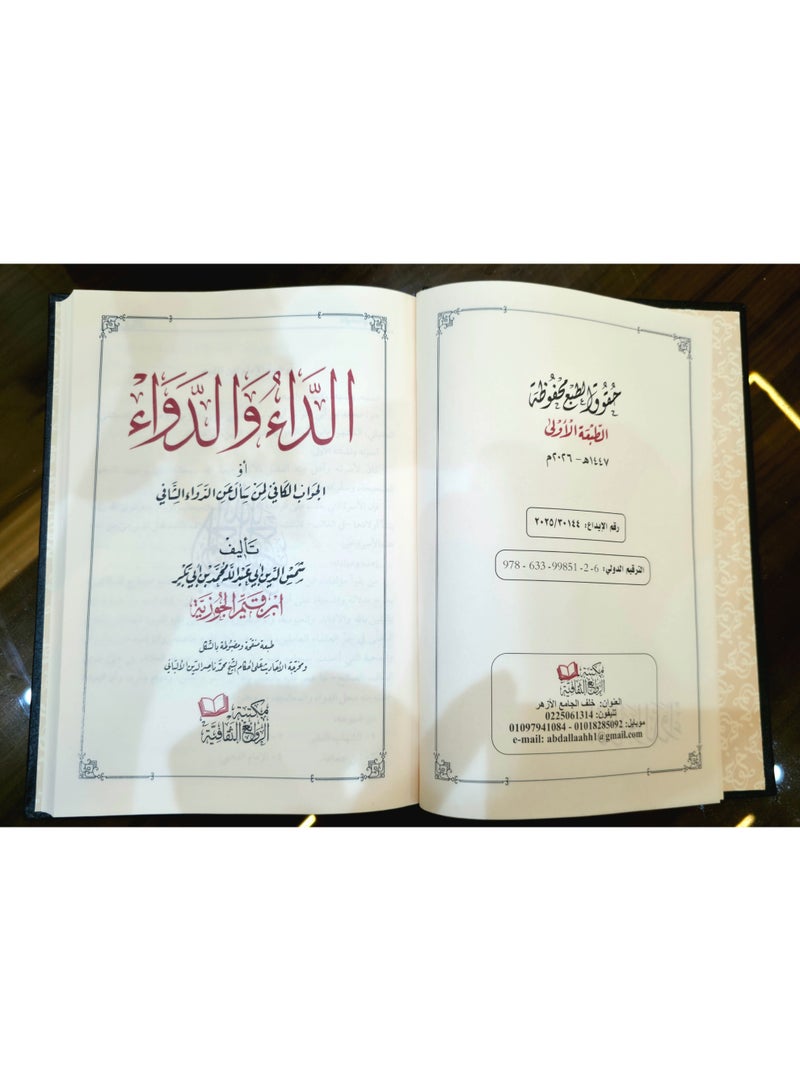 حقوق الطبع محفوظة
الطبعة الأولى
١٤٤٧هـ - ٢٠٢٦م
رقم الإيداع: ٢٠٢٥/٣٠١٤٤
الترقيم الدولي: 6-2-99851- 633 - 978
مكتبة
الروائع الثقافية
العنوان: خلف الجامع الأزهر
تليفون: 0225061314
موبايل: 01018285092 - 01097941084
e-mail: abdallaahh1@gmail.com
الدَّاءُ وَالدَّوَاءْ
أو
الجواب الكافي لمن سأل عن الدواء الشافي
تأليف
شمس الدين أبي عبد الله محمد بن أبي بكر
ابن قيم الجوزية
طبعة منقحة ومضبوطة بالشكل
ومخرجة الأحاديث على أحكام الشيخ محمد ناصر الدين الألباني
مكتبة
الروائع الثقافية